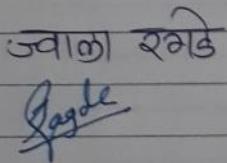 ज्वाला रगडे
Ragde